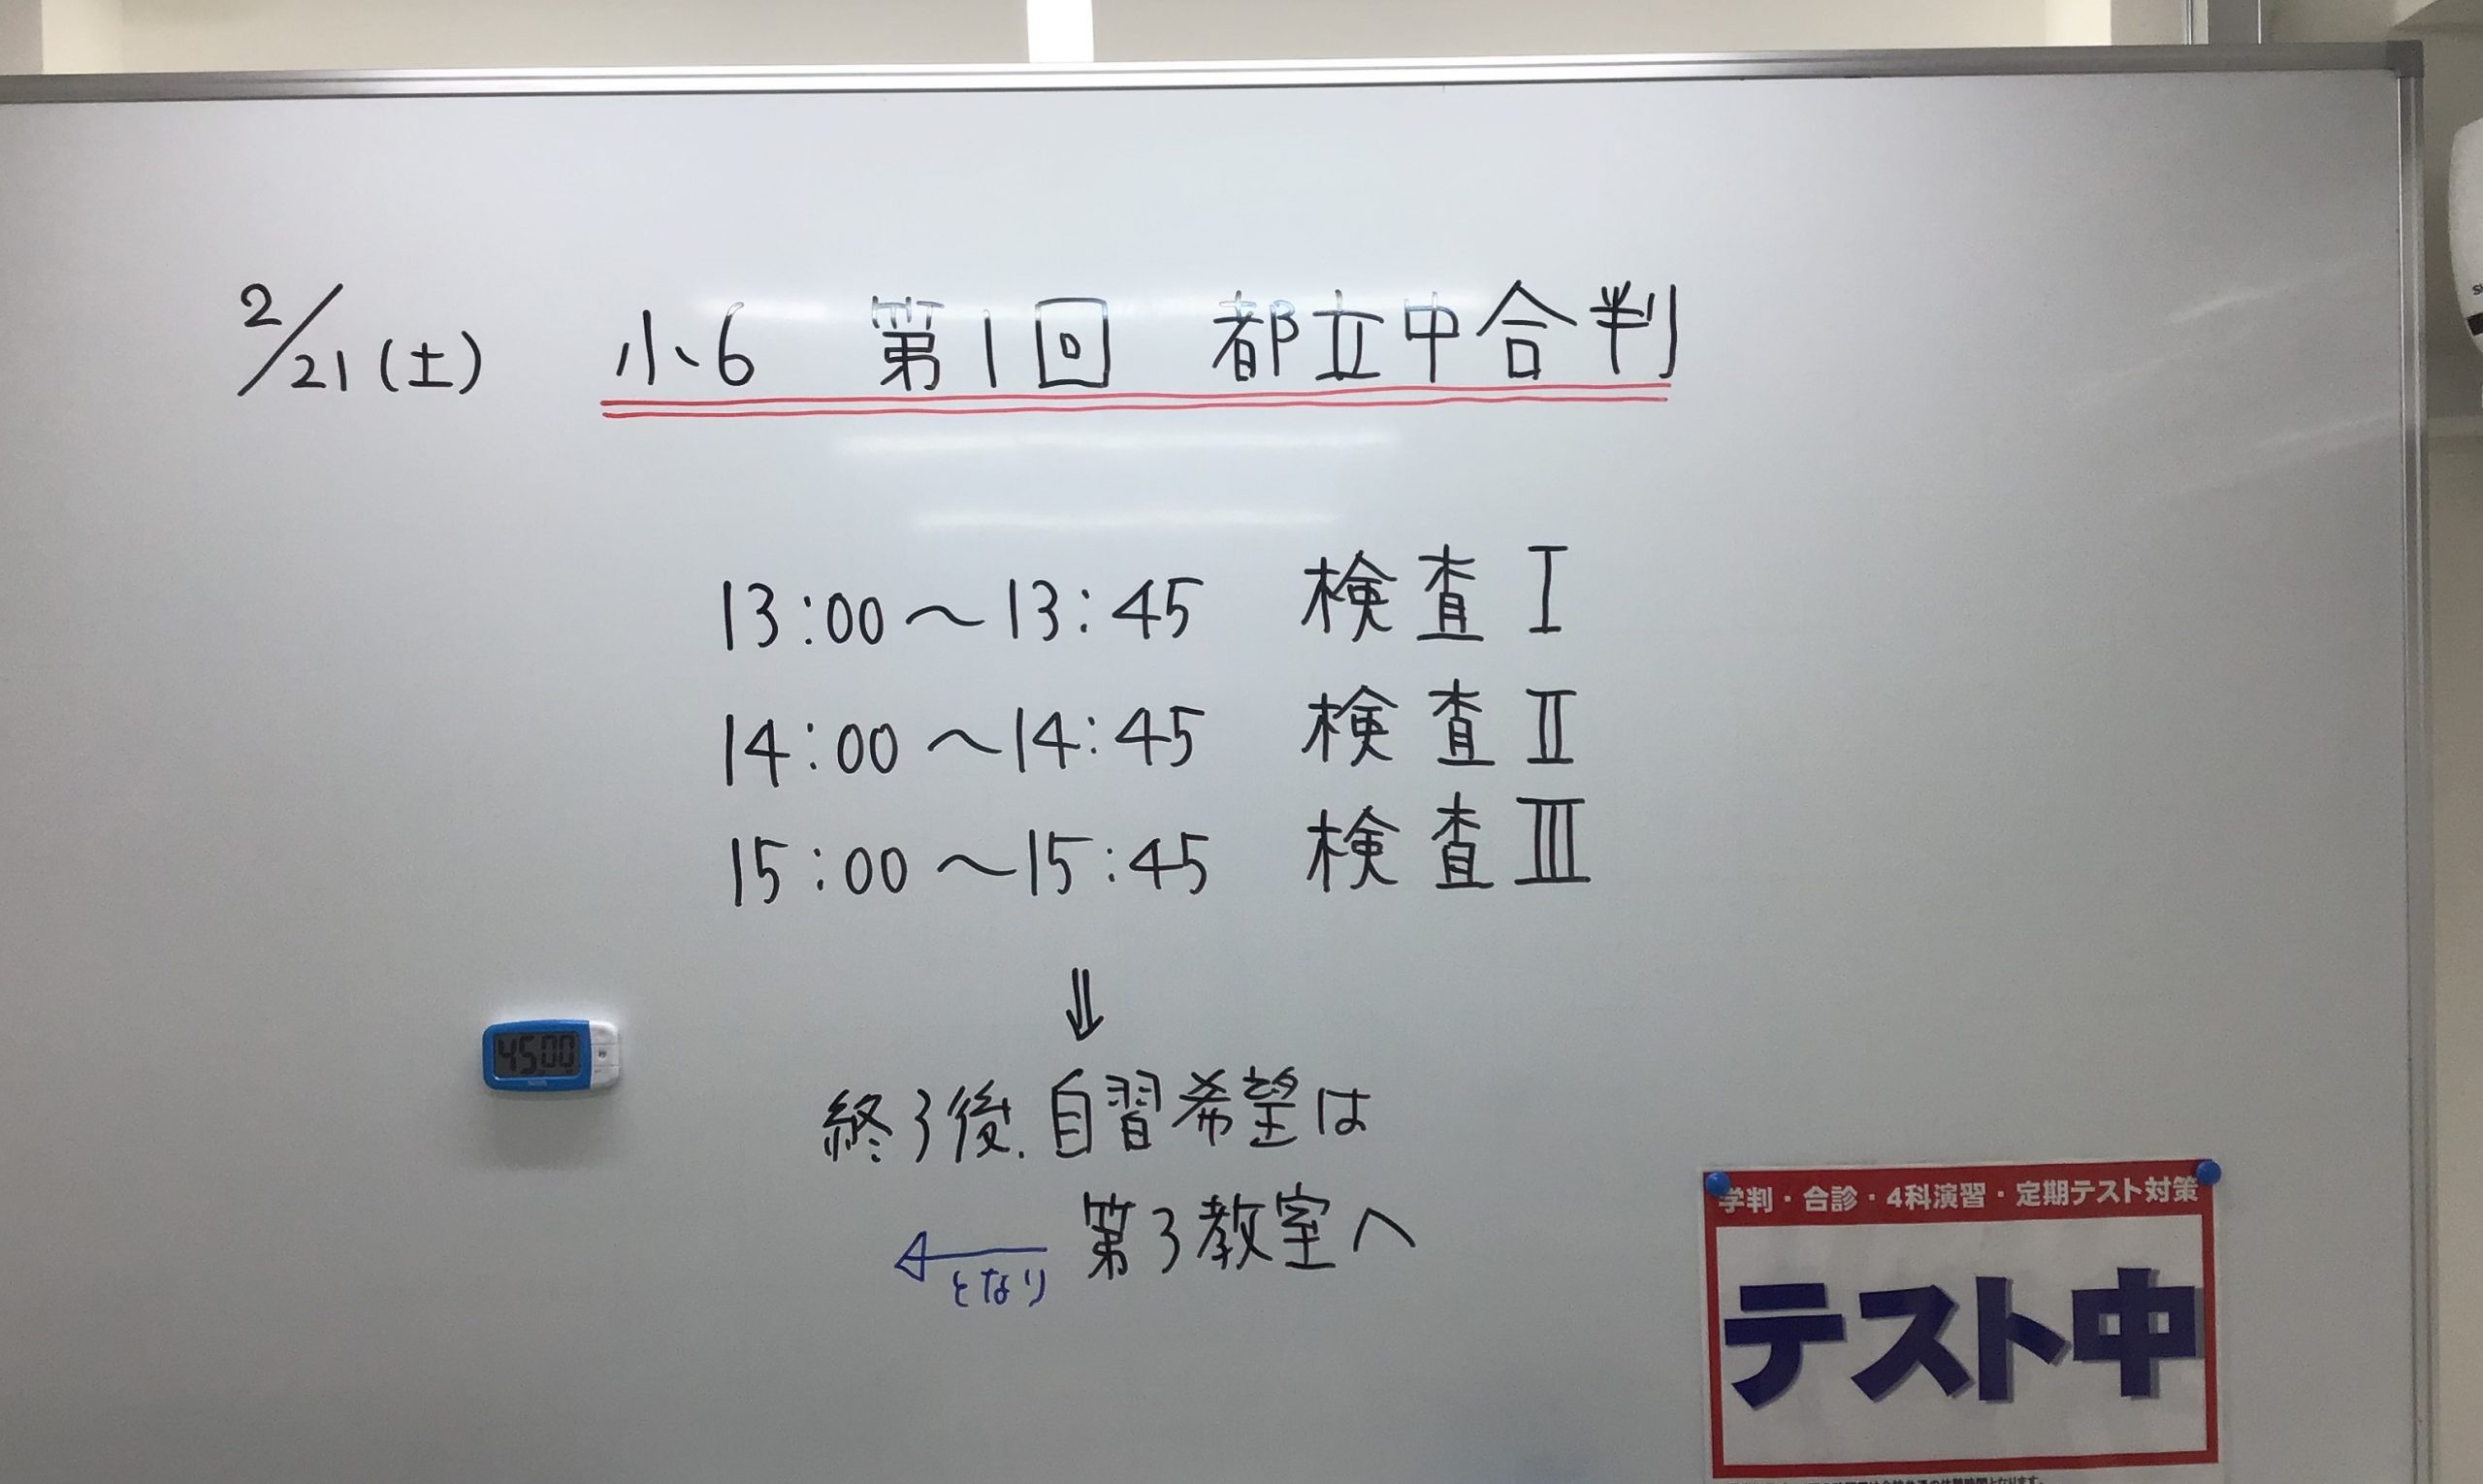 2/21(土) 小6 第1回 都立中合判
13:00〜13:45 検査Ⅰ
14:00〜14:45 検査Ⅱ
15:00〜15:45 検査Ⅲ
⇓
終了後、自習希望は
第3教室へ
← となり
4500
学判・合診・4科演習・定期テスト対策
テスト中